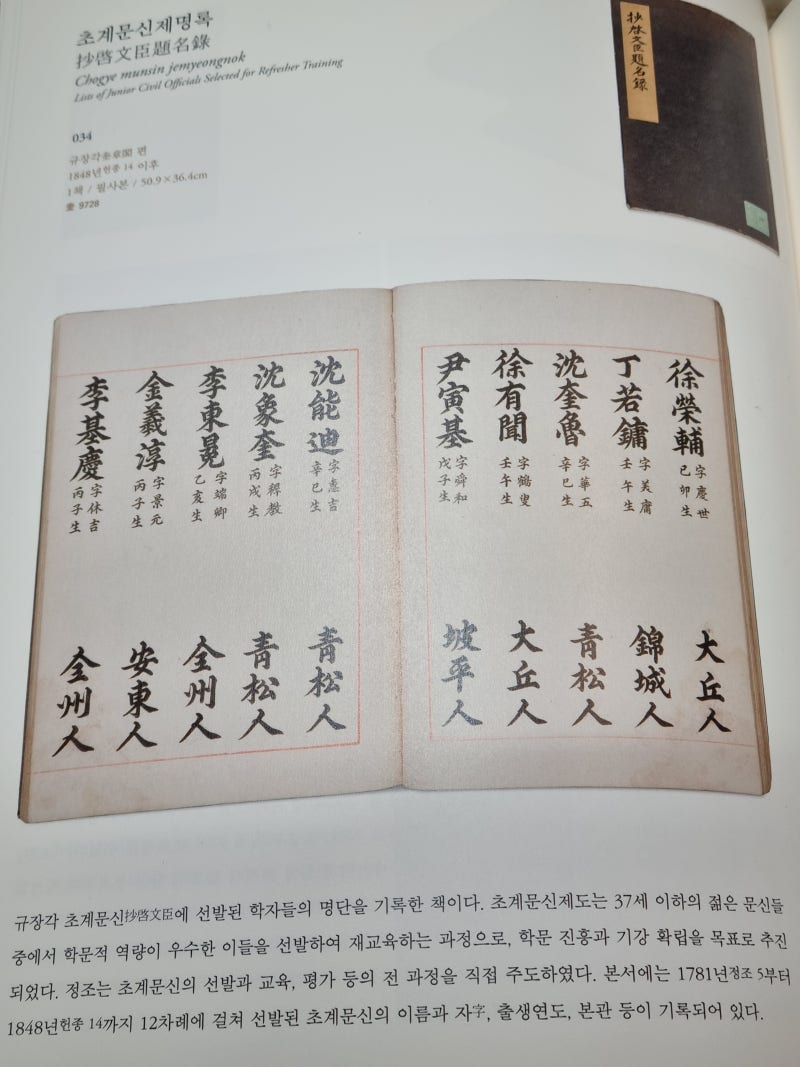 초계문신제명록
抄啓文臣題名錄
Chogye munsin jemyeongnok
Lists of Junior Civil Officials Selected for Refresher Training
034
규장각奎章閣 편
1848년헌종 14 이후
1책 / 필사본 / 50.9×36.4cm
奎 9728
抄啓文臣題名錄
徐榮輔
字慶世
己卯生
大丘人
丁若鏞
字美庸
壬午生
錦城人
沈奎魯
字華五
辛巳生
青松人
徐有聞
字鶴叟
壬午生
大丘人
尹寅基
字舜和
戊子生
坡平人
沈能迪
字惠吉
辛巳生
青松人
沈象奎
字穉教
丙戌生
青松人
李東冕
字端卿
乙亥生
全州人
金義淳
字景元
丙子生
安東人
李基慶
字休吉
丙子生
全州人
규장각 초계문신抄啓文臣에 선발된 학자들의 명단을 기록한 책이다. 초계문신제도는 37세 이하의 젊은 문신들
중에서 학문적 역량이 우수한 이들을 선발하여 재교육하는 과정으로, 학문 진흥과 기강 확립을 목표로 추진
되었다. 정조는 초계문신의 선발과 교육, 평가 등의 전 과정을 직접 주도하였다. 본서에는 1781년정조 5부터
1848년헌종 14까지 12차례에 걸쳐 선발된 초계문신의 이름과 자字, 출생연도, 본관 등이 기록되어 있다.